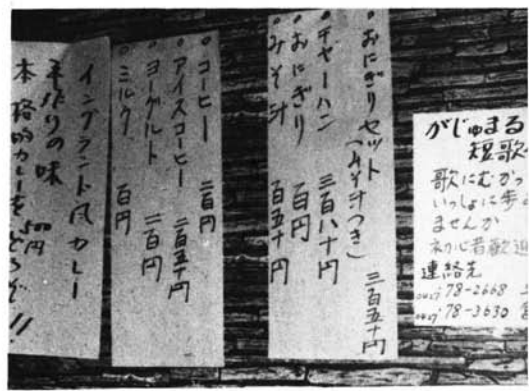 がじゅまる
短歌
歌にむかっ
いっしょに歩
ませんか
初心者歓迎
連絡先
78-2668
78-3630
おにぎりセット(みそ汁つき) 三百五十円
チャーハン 三百八十円
おにぎり 百円
みそ汁 百五十円
コーヒー 二百円
アイスコーヒー 二百五十円
ヨーグルト 二百円
ミルク 百円
イングランド風カレー
手作りの味 500円
本格的カレーをどうぞ!!